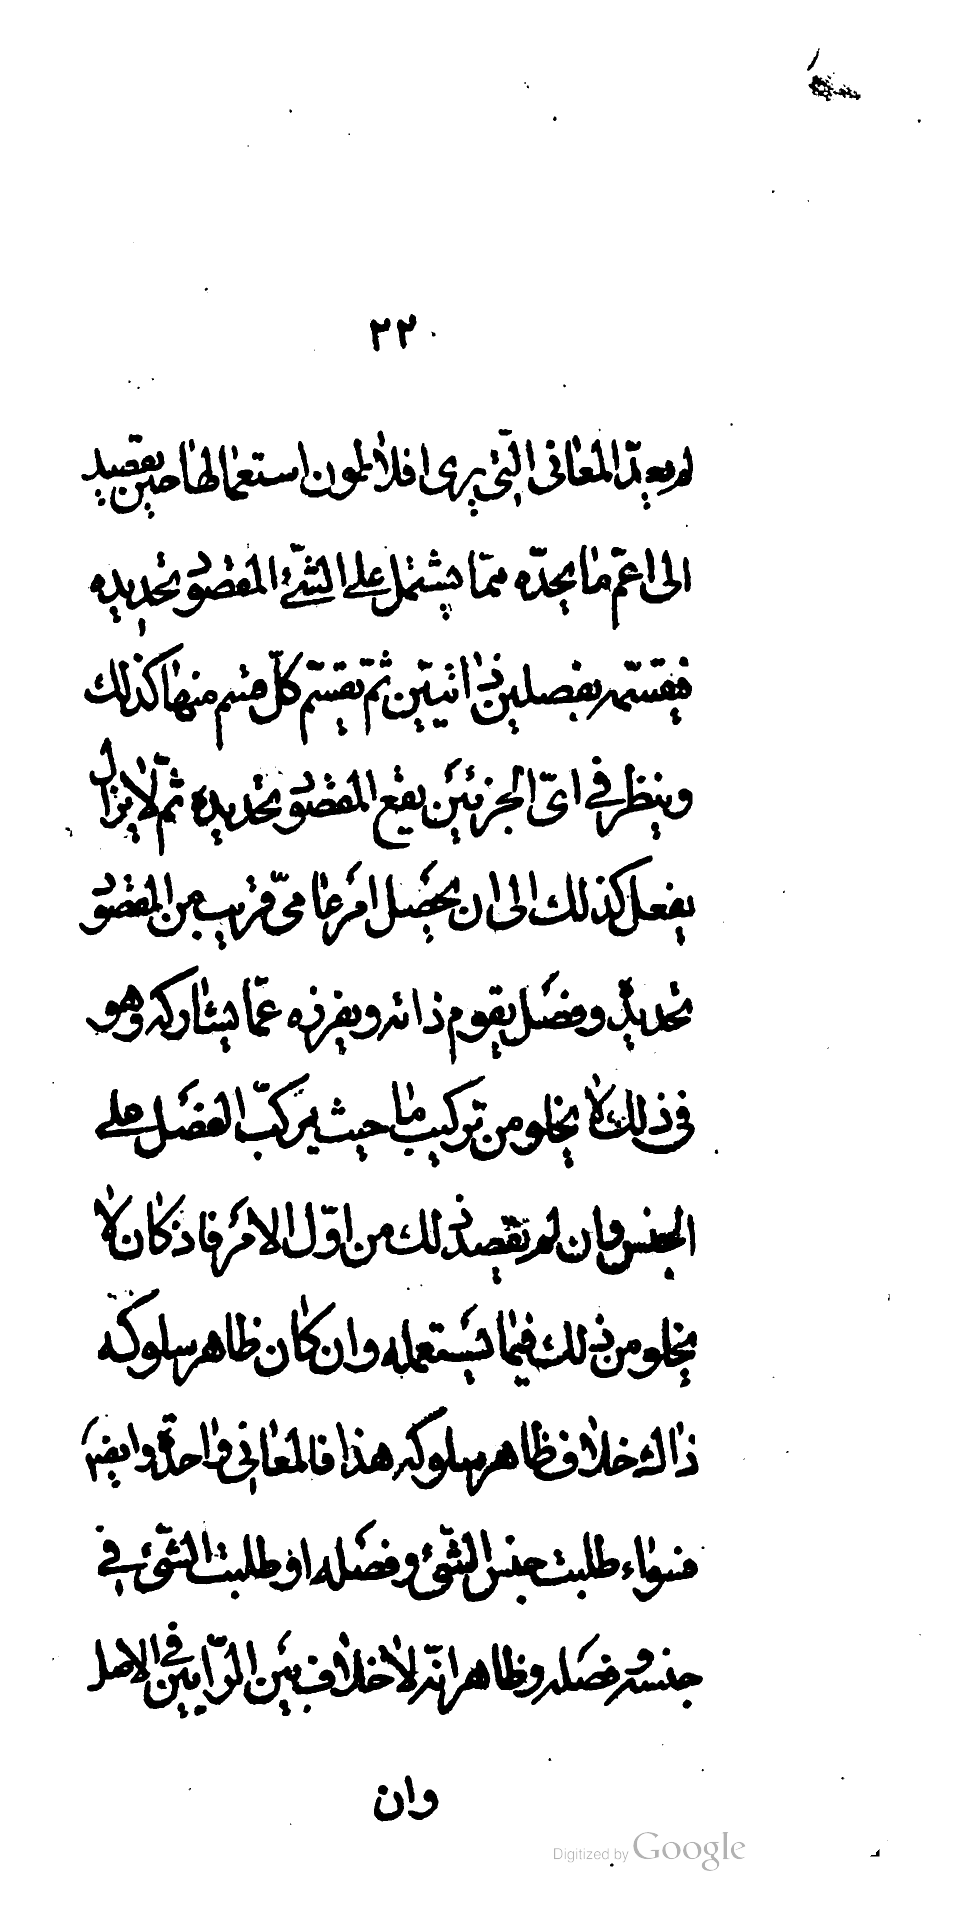 ٢٢
لم يعد المعانى الّتى يرى افلاطون استعمالها حين يقصد
الى اعمّ ما يحدّه ممّا يشتمل على الشّئ المقصود تحديده
فيقسّمه بفصلين ذاتيّين ثمّ يقسّم كلّ قسم منها كذلك
وينظر فى اىّ الجزئين يقع المقصود تحديده ثمّ لا يزال
يفعل كذلك الى ان يحصل امر عامىّ قريب من المقصود
تحديده وفصل يقوم ذاته ويفرزه عمّا يشاركه وهو
فى ذلك لا يخلو من تركيب ما حيث يركّب الفصل على
الجنس وان لم يقصد ذلك من اوّل الامر فاذ كان لا
يخلو من ذلك فيما يستعمله وان كان ظاهر سلوكه
ذاك خلاف ظاهر سلوكه هذا فالمعانى واحدة وايضا
فسواء طلبت جنس الشّئ وفصله او طلبت الشّئ فى
جنسه وفصله وظاهر انّه لا خلاف بين الرّايين فى الاصل
وان
Digitized by Google